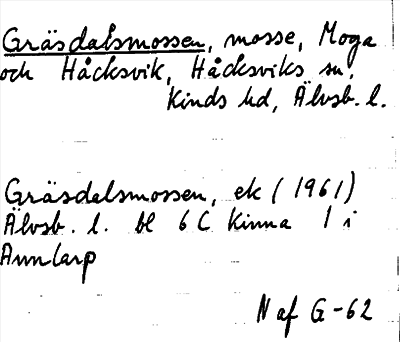 Gräsdalsmossen, mosse, Moga
och Håcksvik, Håcksviks sn,
Kinds hd, Älvsb. l.
Gräsdalsmossen, ek (1961)
Älvsb. l. bl 6 C Kinna 1 i
Annlarp
N af G-62